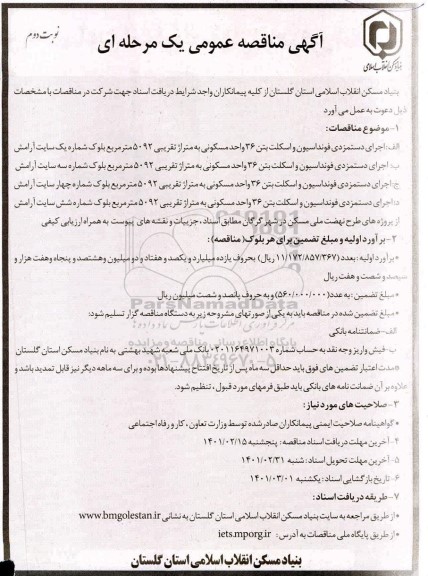 نوبت دوم
آگهی مناقصه عمومی یک مرحله ای
بنیاد مسکن انقلاب اسلامی
بنیاد مسکن انقلاب اسلامی استان گلستان از کلیه پیمانکاران واجد شرایط دریافت اسناد جهت شرکت در مناقصات با مشخصات
ذیل دعوت به عمل می آورد
۱- موضوع مناقصات:
الف: اجرای دستمزدی فونداسیون و اسکلت بتن ۳۶ واحد مسکونی به متراژ تقریبی ۵۰۹۲ مترمربع بلوک شماره یک سایت آرامش
ب: اجرای دستمزدی فونداسیون و اسکلت بتن ۳۶ واحد مسکونی به متراژ تقریبی ۵۰۹۲ مترمربع بلوک شماره سه سایت آرامش
ج: اجرای دستمزدی فونداسیون و اسکلت بتن ۳۶ واحد مسکونی به متراژ تقریبی ۵۰۹۲ مترمربع بلوک شماره چهار سایت آرامش
د: اجرای دستمزدی فونداسیون و اسکلت بتن ۳۶ واحد مسکونی به متراژ تقریبی ۵۰۹۲ مترمربع بلوک شماره شش سایت آرامش
از پروژه های طرح نهضت ملی مسکن در شهر گرگان مطابق اسناد، جزییات و نقشه های پیوست به همراه ارزیابی کیفی
۲- برآورد اولیه و مبلغ تضمین برای هر بلوک (مناقصه):
*برآورد اولیه: بعدد (۱۱/۱۷۲/۸۵۷/۳۶۷ ریال) بحروف یازده میلیارد و یکصد و هفتاد و دو میلیون و هشتصد و پنجاه و هفت هزار و
سیصد و شصت و هفت ریال
*مبلغ تضمین: به عدد (۵۶۰/۰۰۰/۰۰۰) و به حروف پانصد و شصت میلیون ریال
*مبلغ تضمین شده در مناقصه باید به یکی از صورتهای مشروحه زیر به دستگاه مناقصه گزار تسلیم شود:
الف- ضمانتنامه بانکی
ب- فیش واریز وجه نقد به حساب شماره ۰۲۰۱۱۶۴۹۷۱۰۰۳ بانک ملی شعبه شهید بهشتی به نام بنیاد مسکن استان گلستان
*مدت اعتبار تضمین های فوق باید حداقل سه ماه پس از تاریخ افتتاح پیشنهادها بوده و برای سه ماهه دیگر نیز قابل تمدید باشد و
علاوه بر آن ضمانت نامه های بانکی باید طبق فرمهای مورد قبول، تنظیم شود.
۳- صلاحیت های مورد نیاز:
*گواهینامه صلاحیت ایمنی پیمانکاران صادر شده توسط وزارت تعاون، کار و رفاه اجتماعی
۴- آخرین مهلت دریافت اسناد مناقصه: پنجشنبه ۱۴۰۱/۰۲/۱۵
۵- آخرین مهلت تحویل اسناد: شنبه ۱۴۰۱/۰۲/۳۱
۶- تاریخ بازگشایی اسناد: یکشنبه ۱۴۰۱/۰۳/۰۱
۷- طریقه دریافت اسناد:
*از طریق مراجعه به سایت بنیاد مسکن انقلاب اسلامی استان گلستان به نشانی www.bmgolestan.ir
*از طریق پایگاه ملی مناقصات به آدرس: iets.mporg.ir
بنیاد مسکن انقلاب اسلامی استان گلستان
ParsNamadData